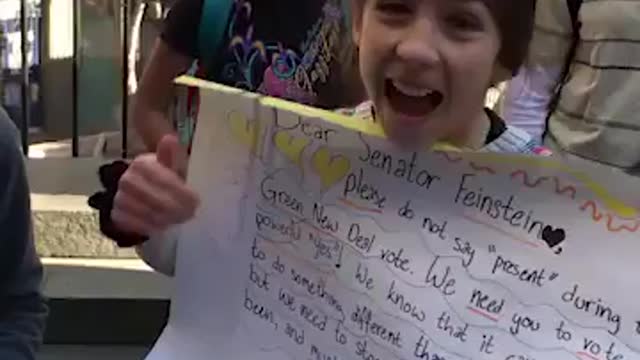 Dear Senator Feinstein,
please do not say "present" during
Green New Deal vote. We need you to vote
powerful "yes"! We know that it
to do something different
but we need to
been, and